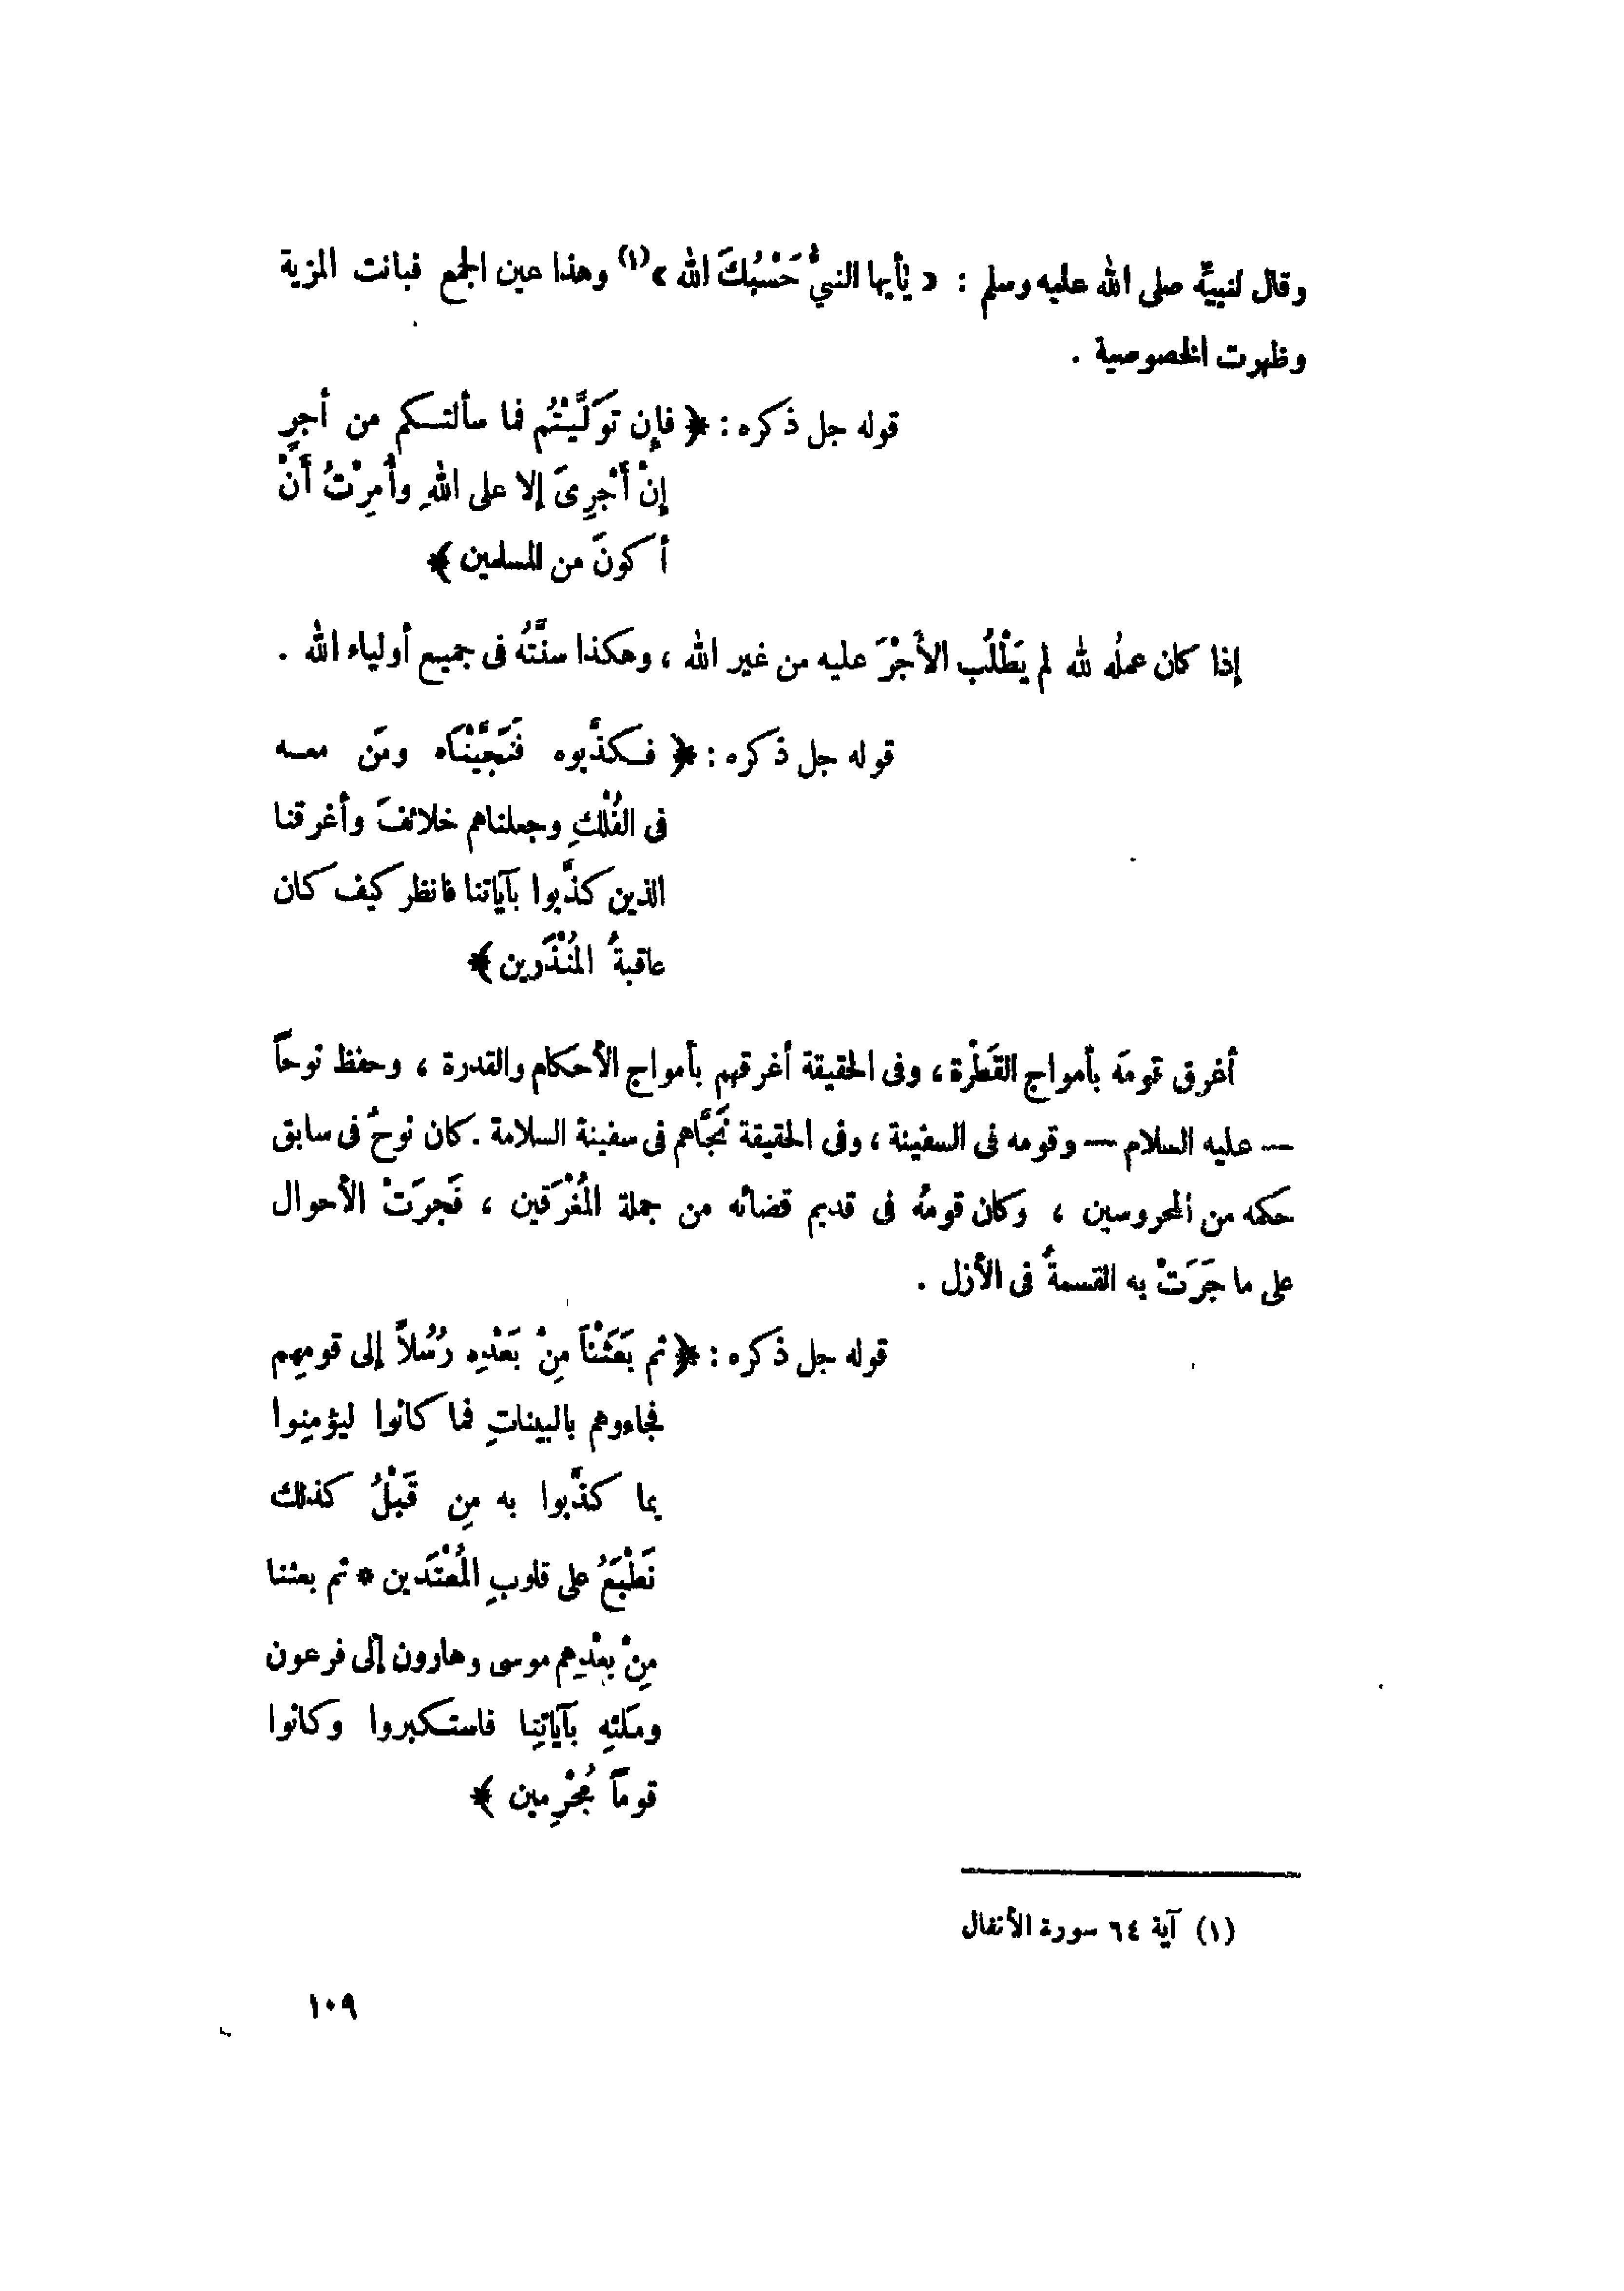 وقال لنبيِّه صلى الله عليه وسلم : « يٰأيها النبيُّ حَسْبُكَ الله »(١) وهذا عين الجمع فبانت المزية
وظهرت الخصوصية .
قوله جل ذكره : ﴿ فإِن تَوَلَّيْتُم فما سألتكم من أجرٍ
إِنْ أَجْرِىَ إلا على اللهِ وأُمِرْتُ أَنْ
أكونَ من المسلمين ﴾
إذا كان عملُه لله لم يَطْلُب الأَجْرَ عليه من غير الله ، وهكذا سنَّتُه فى جميع أولياء الله .
قوله جل ذكره : ﴿ فكذَّبوه فَنَجَّيْنَاه ومَن معه
فى الفُلْكِ وجعلناهم خلائفَ وأغرقنا
الذين كذَّبوا بآياتنا فانظر كيف كان
عاقبةُ المُنْذَرين ﴾
أغرق قومَه بأمواج القَطْرة ، وفى الحقيقة أغرقهم بأمواج الأحكام والقدرة ، وحفظ نوحاً
— عليه السلام — وقومه فى السفينة ، وفى الحقيقة نَجَّاهم فى سفينة السلامة . كان نوحٌ فى سابق
حكمه من المحروسين ، وكان قومُه فى قديم قضائه من جملة المُغْرَقين ، فَجرَتْ الأحوال
على ما جَرَتْ به القسمةُ فى الأزل .
قوله جل ذكره : ﴿ ثم بَعَثْنَا مِنْ بَعْدِه رُسُلاً إلى قومهِم
فجاءوهم بالبيناتِ فما كانوا ليؤمنِوا
بما كذَّبوا به مِن قَبْلُ كذلك
نَطْبَعُ على قلوبِ المُعْتَدين * ثم بعثنا
مِنْ بعْدِهم موسى وهارون إلى فرعون
وملئهِ بآياتِنا فاستكبروا وكانوا
قوماً مُجْرِمين ﴾
(١) آية ٦٤ سورة الأنفال
١٠٩